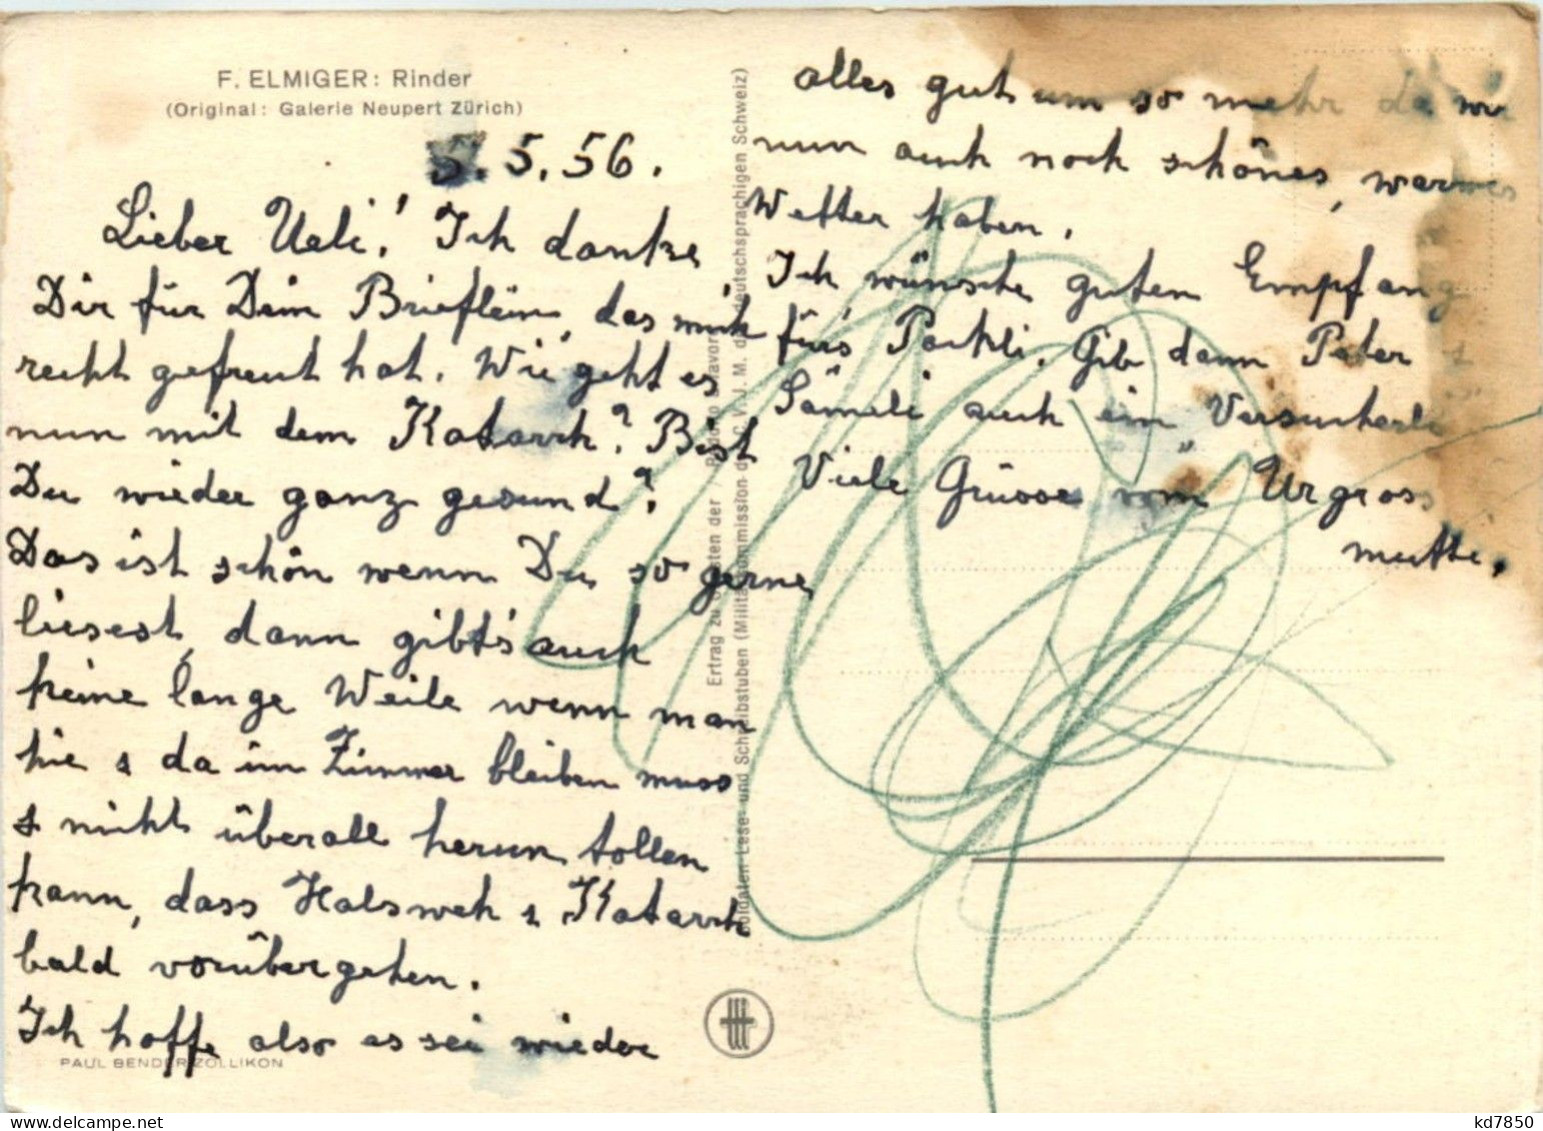 F. ELMIGER: Rinder
(Original: Galerie Neupert Zürich)
5. 5. 56.
Lieber Ueli! Ich danke
Dir für Dein Brieflein, das mich
recht gefreut hat. Wie geht es
nun mit dem Katarrh? Bist
Du wieder ganz gesund?
Das ist schön wenn Du so gerne
liesest, dann gibt's auch
keine lange Weile wenn man
hie & da im Zimmer bleiben muss
& nicht überall herum tollen
kann, dass Halsweh & Katarrh
bald vorübergehen.
Ich hoffe also es sei wieder
PAUL BENDER ZOLLIKON
Ertrag zu Gunsten der
Soldaten Lese- und Schreibstuben (Militärkommission der C. V. J. M. der deutschsprachigen Schweiz)
alles gut um so mehr da wir
nun auch noch schönes, warmes
Wetter haben.
Ich wünsche guten Empfang
fürs Päckli. Gib dann Peter
Sämeli auch ein Versucherli
Viele Grüsse vom Urgross
mutti.
kd7850